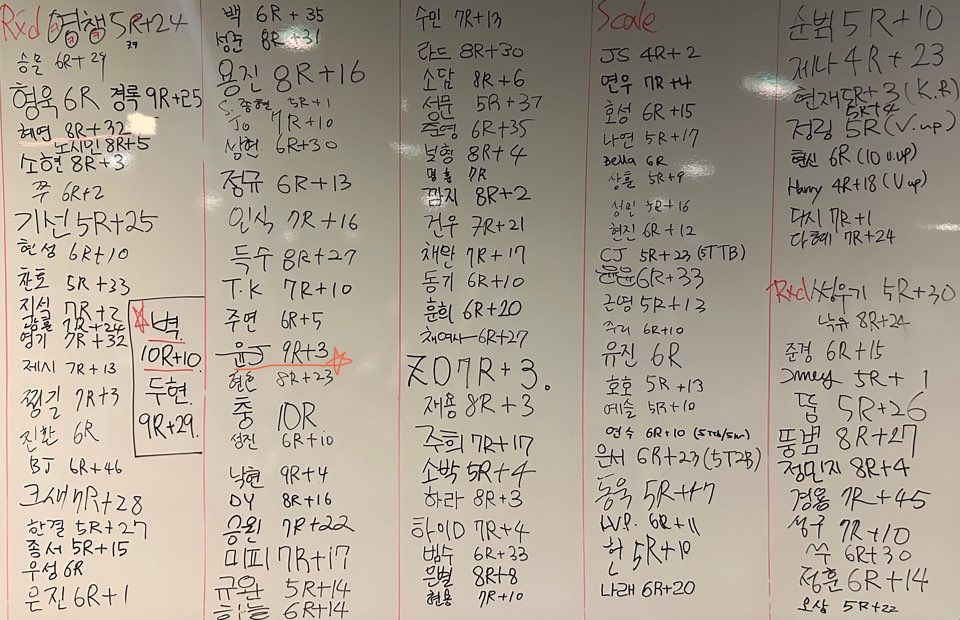 Rxd 영쟁 5R+24
승믈 6R+29
형욱 6R 경록 9R+25
혜연 8R+32
노시민 8R+5
소현 8R+3
쭈 6R+2
기선 5R+25
현성 6R+10
찬호 5R+33
지석 7R+2
7R+24
영기 7R+32
제시 7R+13
찡길 7R+3
진환 6R
BJ 6R+46
크새 7R+28
한결 5R+27
종서 5R+15
우성 6R
은진 6R+1
벽
10R+10
두현
9R+29.
백 6R+35
성준 8R+31
용진 8R+16
종현 5R+1
Jo 7R+10
상현 6R+30
정규 6R+13
인식 7R+16
득수 8R+27
T.K 7R+10
주연 6R+5
윤J 9R+3
8R+23
충 10R
성진 6R+10
낙현 9R+4
DY 8R+16
승원 7R+22
미피 7R+17
규완 5R+14
하늘 6R+14
수민 7R+13
라드 8R+30
소담 8R+6
성문 5R+37
준영 6R+35
보형 8R+4
7R
깜지 8R+2
건우 7R+21
채완 7R+17
동기 6R+10
훈희 6R+20
채여사 6R+27
ZO 7R+3.
재용 8R+3
주희 7R+17
소박 5R+4
하라 8R+3
하이D 7R+4
범수 6R+33
은별 8R+8
현용 7R+10
Scale
JS 4R+2
연우 7R+4
호성 6R+15
나연 5R+17
Bella 6R
상훈 5R+9
성민 5R+16
현진 6R+12
CJ 5R+23 (5TTB)
윤윤 6R+33
근영 5R+13
주리 6R+10
유진 6R
호호 5R+13
예슬 5R+10
연수 6R+10 (5Ttb/5km)
은서 6R+23 (5T2B)
동욱 5R+17
LVP. 6R+11
헌 5R+10
나래 6R+20
순뷕 5R+10
제나 4R+23
현재 5R+3 (K.R)
5R+4
정링 5R (V.up)
현신 6R (10 v.up)
Harry 4R+18 (V up)
다시 7R+1
다혜 7R+24
Rxd 성우기 5R+30
8R+24
준경 6R+15
Jmey 5R+1
뚬 5R+26
뚱범 8R+27
정민지 8R+4
경용 7R+45
성구 7R+10
쑤 6R+30
정훈 6R+14
오상 5R+22